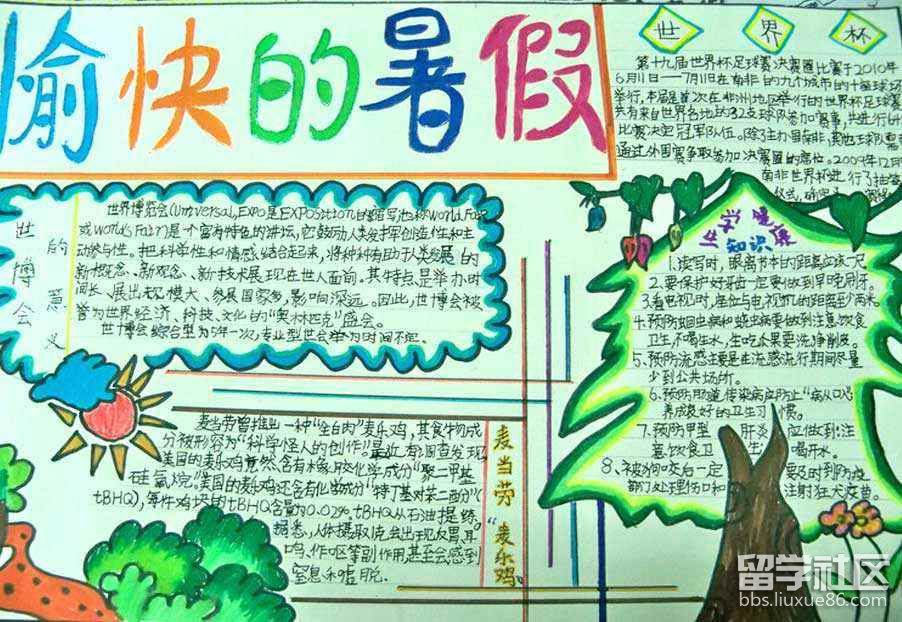 愉快的暑假
世界杯
第十九届世界杯足球赛决赛圈比赛于2010年
6月11日——7月11日在南非的九个城市的十座球场
举行,本届是首次在非洲地区举行的世界杯足球赛
共有来自世界各地的32支球队参加赛事,共进行64
比赛决定冠军队伍。除了主办国南非
通过外围赛争取参加决赛圈的席位。2009年12月
南非世界杯进行了抽签
仪式
世博会
的意义
世界博览会(Universal,Expo是Exposition的缩写
或World's Fair)是一个富有特色的讲坛,它鼓励人类发挥创造性和主
动参与性。把科学性和情感结合起来,将种种有助于人类发展的
新概念、新观念、新技术展现在世人面前。其特点是举办时
间长、展出规模大、参展国家多,影响深远。因此,世博会被
誉为世界经济、科技、文化的"奥林匹克"盛会。
世博会综合型为5年一次,专业型世会举办时间不定。
大学健康
知识
1、读写时,眼离书本的距离应该一尺
2、要保护好牙齿一定要做到早晚刷牙。
3、看电视时,座位与电视机的距离至少两米。
4、预防蛔虫病和蛲虫病要做到注意饮食
卫生,不喝生水,生吃瓜果要洗净削皮。
5、预防流感主要是在流感流行期间尽量
少到公共场所。
6、预防肠道传染病应防止"病从口入"
养成良好的卫生习惯。
7、预防甲型肝炎应做到:注
意饮食卫生 喝开水。
8、被狗咬后一定要及时到防疫
部门处理伤口和注射狂犬疫苗。
麦当劳"麦乐鸡"
麦当劳曾推出一种"全白肉"麦乐鸡,其食物成
分被形容为"科学怪人的创作"最近有调查发现,
美国的麦乐鸡竟然含有水象胶化学成分"聚二甲基
硅氧烷。"美国的麦乐鸡还含有化学成分"特丁基对苯二酚"(
tBHQ),每件鸡块的tBHQ含量为0.02%,tBHQ从石油提炼,
据悉,人体摄取後,会出现反胃、耳
鸣、作呕等副作用甚至会感到
窒息和虚脱。
留学社区
bbs.liuxue86.com